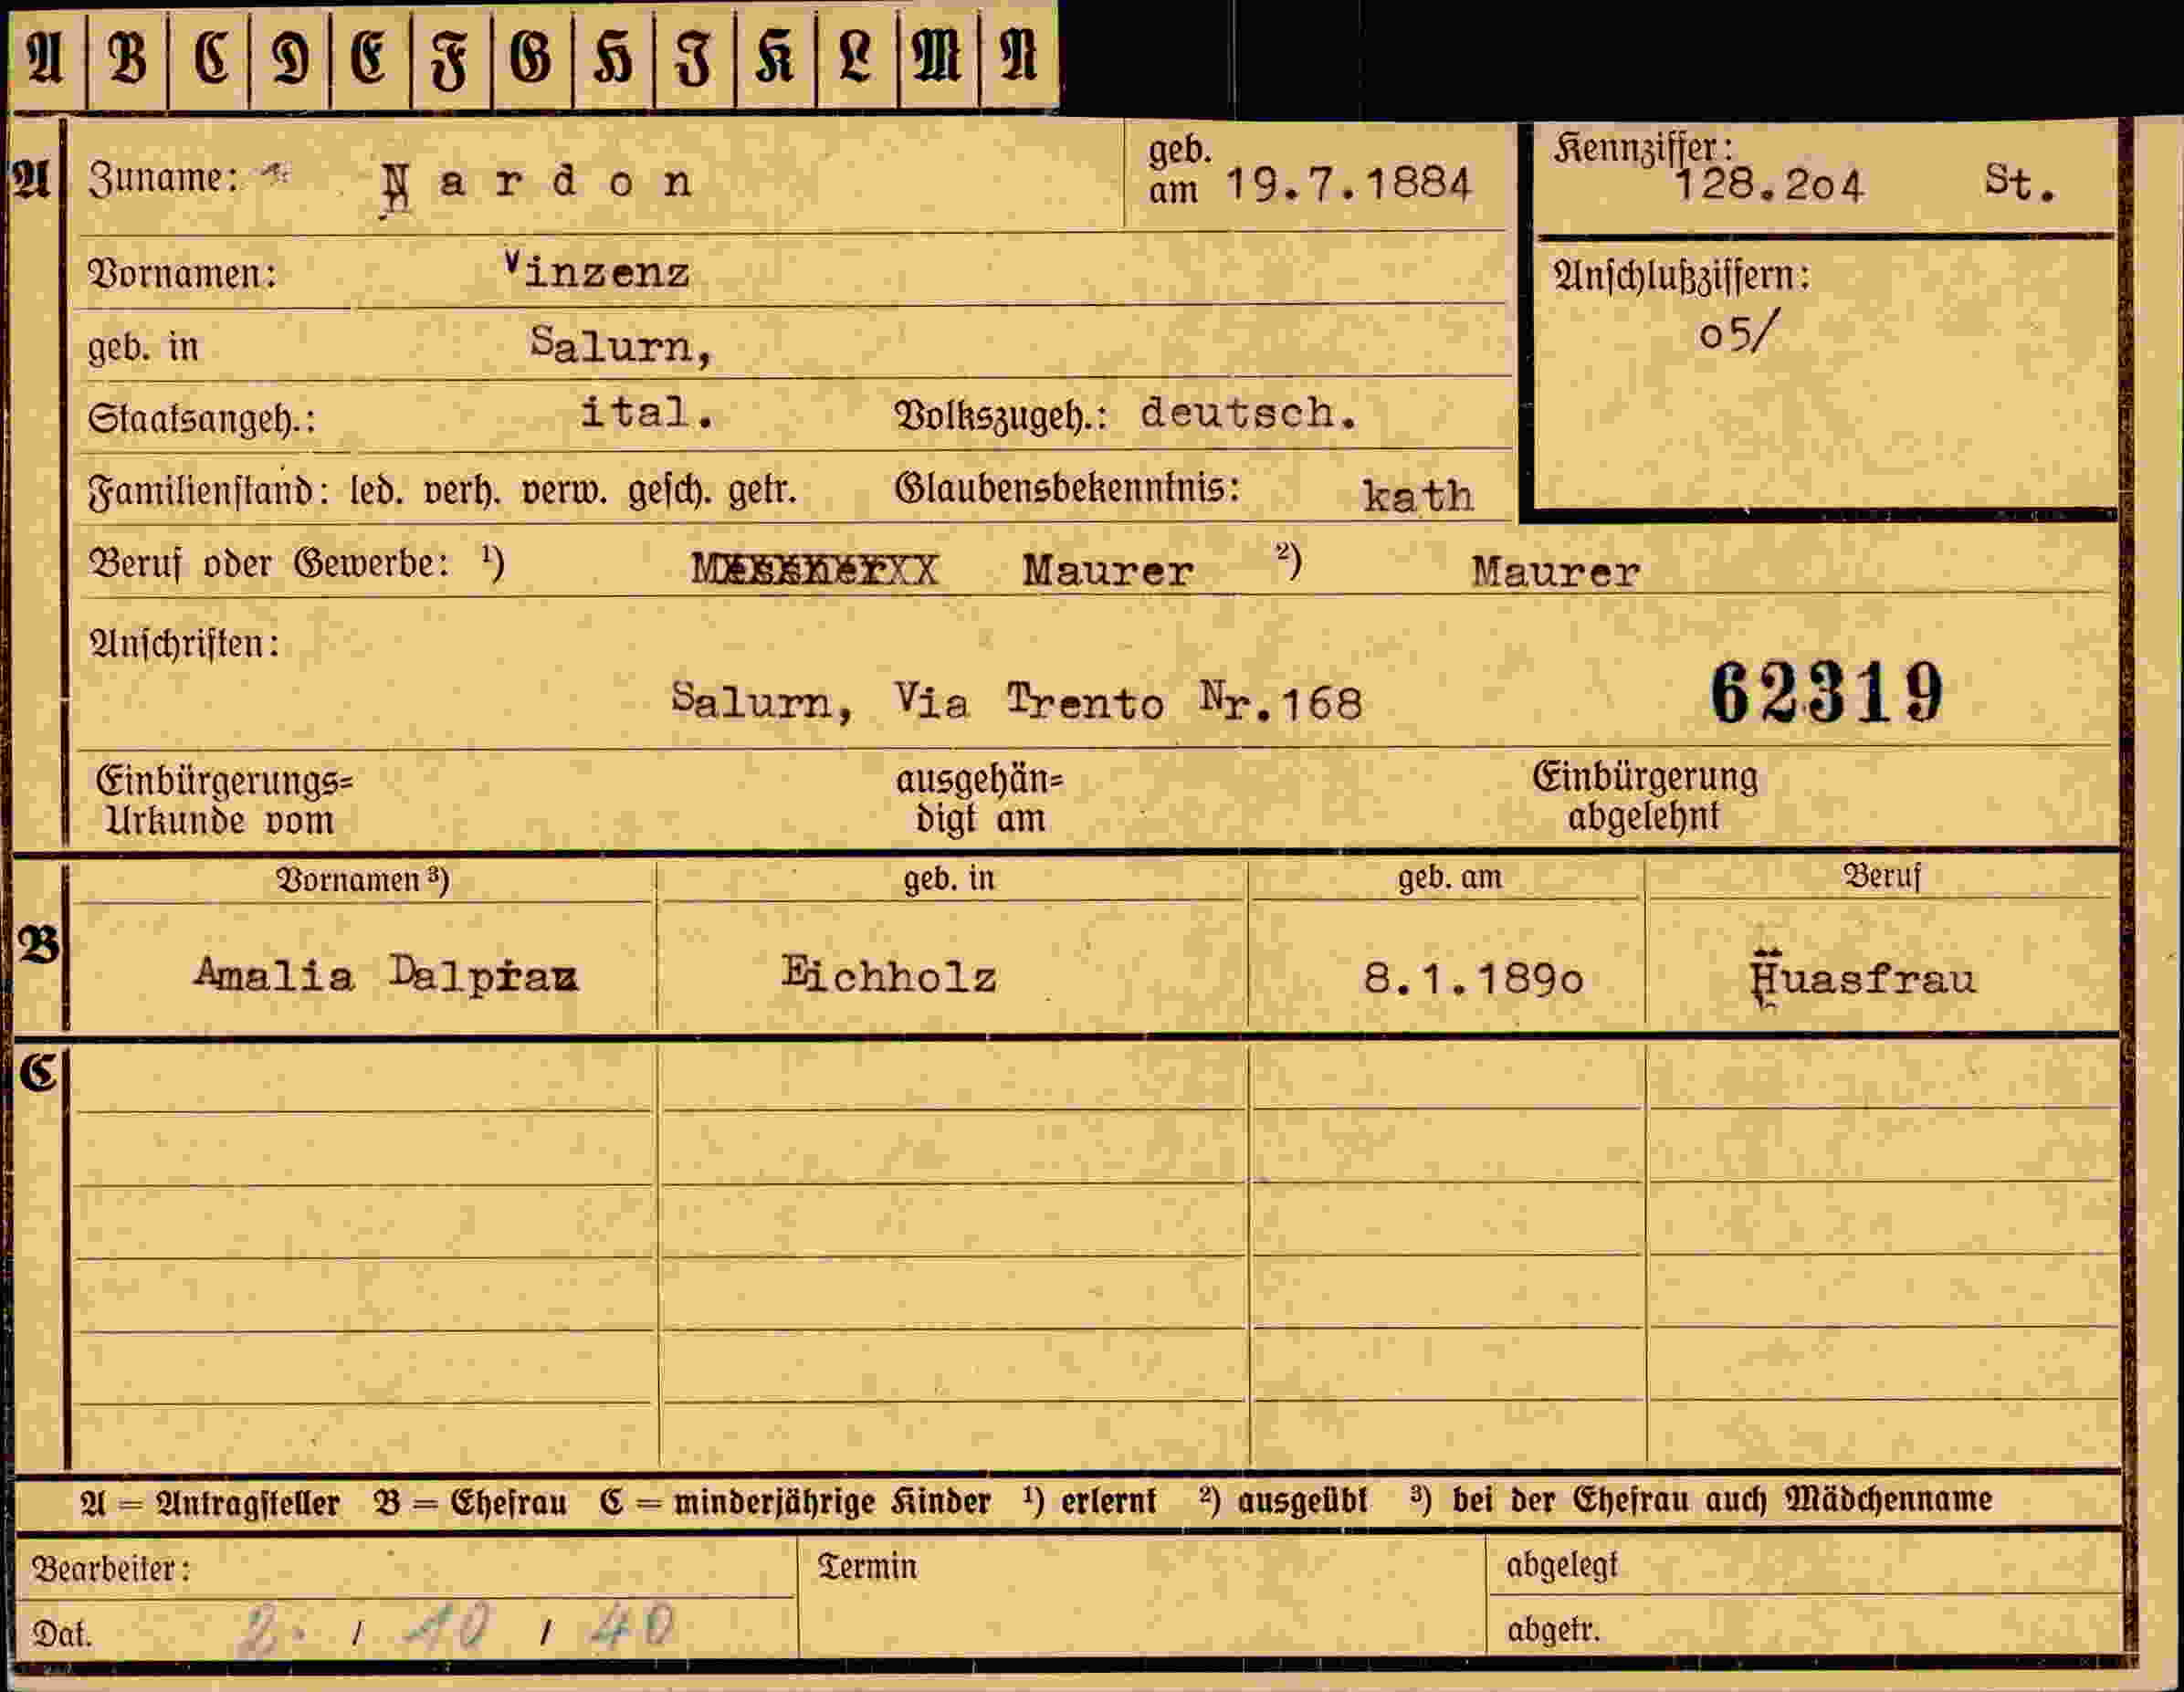 A B C D E F G H I K L M N
A Zuname: Nardon geb. am 19.7.1884 Kennziffer: 128.2o4 St.
Vornamen: Vinzenz Anschlußziffern:
o5/
geb. in Salurn,
Staatsangeh.: ital. Volkszugeh.: deutsch.
Familienstand: led. verh. verw. gesch. getr. Glaubensbekenntnis: kath
Beruf oder Gewerbe: ¹) Maurer ²) Maurer
Anschriften:
Salurn, Via Trento Nr.168 62319
Einbürgerungs=
Urkunde vom
ausgehän=
digt am
Einbürgerung
abgelehnt
B Vornamen ³) geb. in geb. am Beruf
Amalia Dalpraz Eichholz 8.1.189o Huasfrau
C
A = Antragsteller B = Ehefrau C = minderjährige Kinder ¹) erlernt ²) ausgeübt ³) bei der Ehefrau auch Mädchenname
Bearbeiter: Termin abgelegt
Dat. 2. / 10 / 40 abgetr.